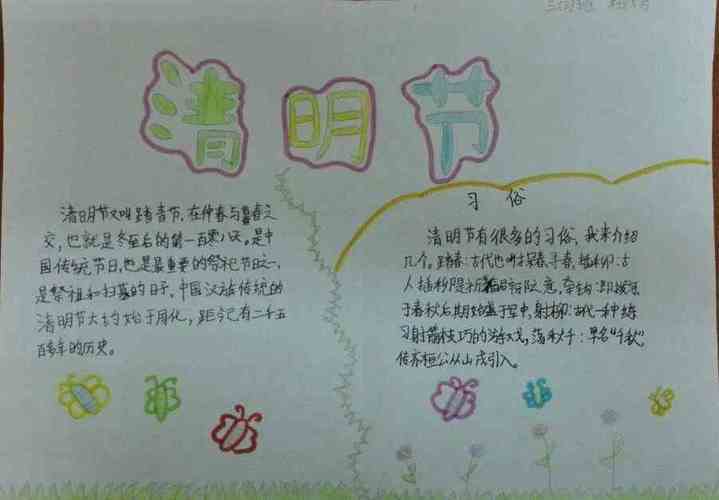 清明节
清明节又叫踏青节,在仲春与暮春之
交,也就是冬至后的第一百零八天。是中
国传统节日,也是最重要的祭祀节日之一,
是祭祖和扫墓的日子。中国汉族传统的
清明节大约始于周代,距今已有二千五
百多年的历史。
习俗
清明节有很多的习俗,我来介绍
几个。踏春:古代也叫探春、寻春。插柳:古
人插柳
于春秋后期始盛于军中,射柳:古代一种练
习射箭技巧的游戏。荡秋千:早名“千秋”,
传齐桓公从山戎引入。